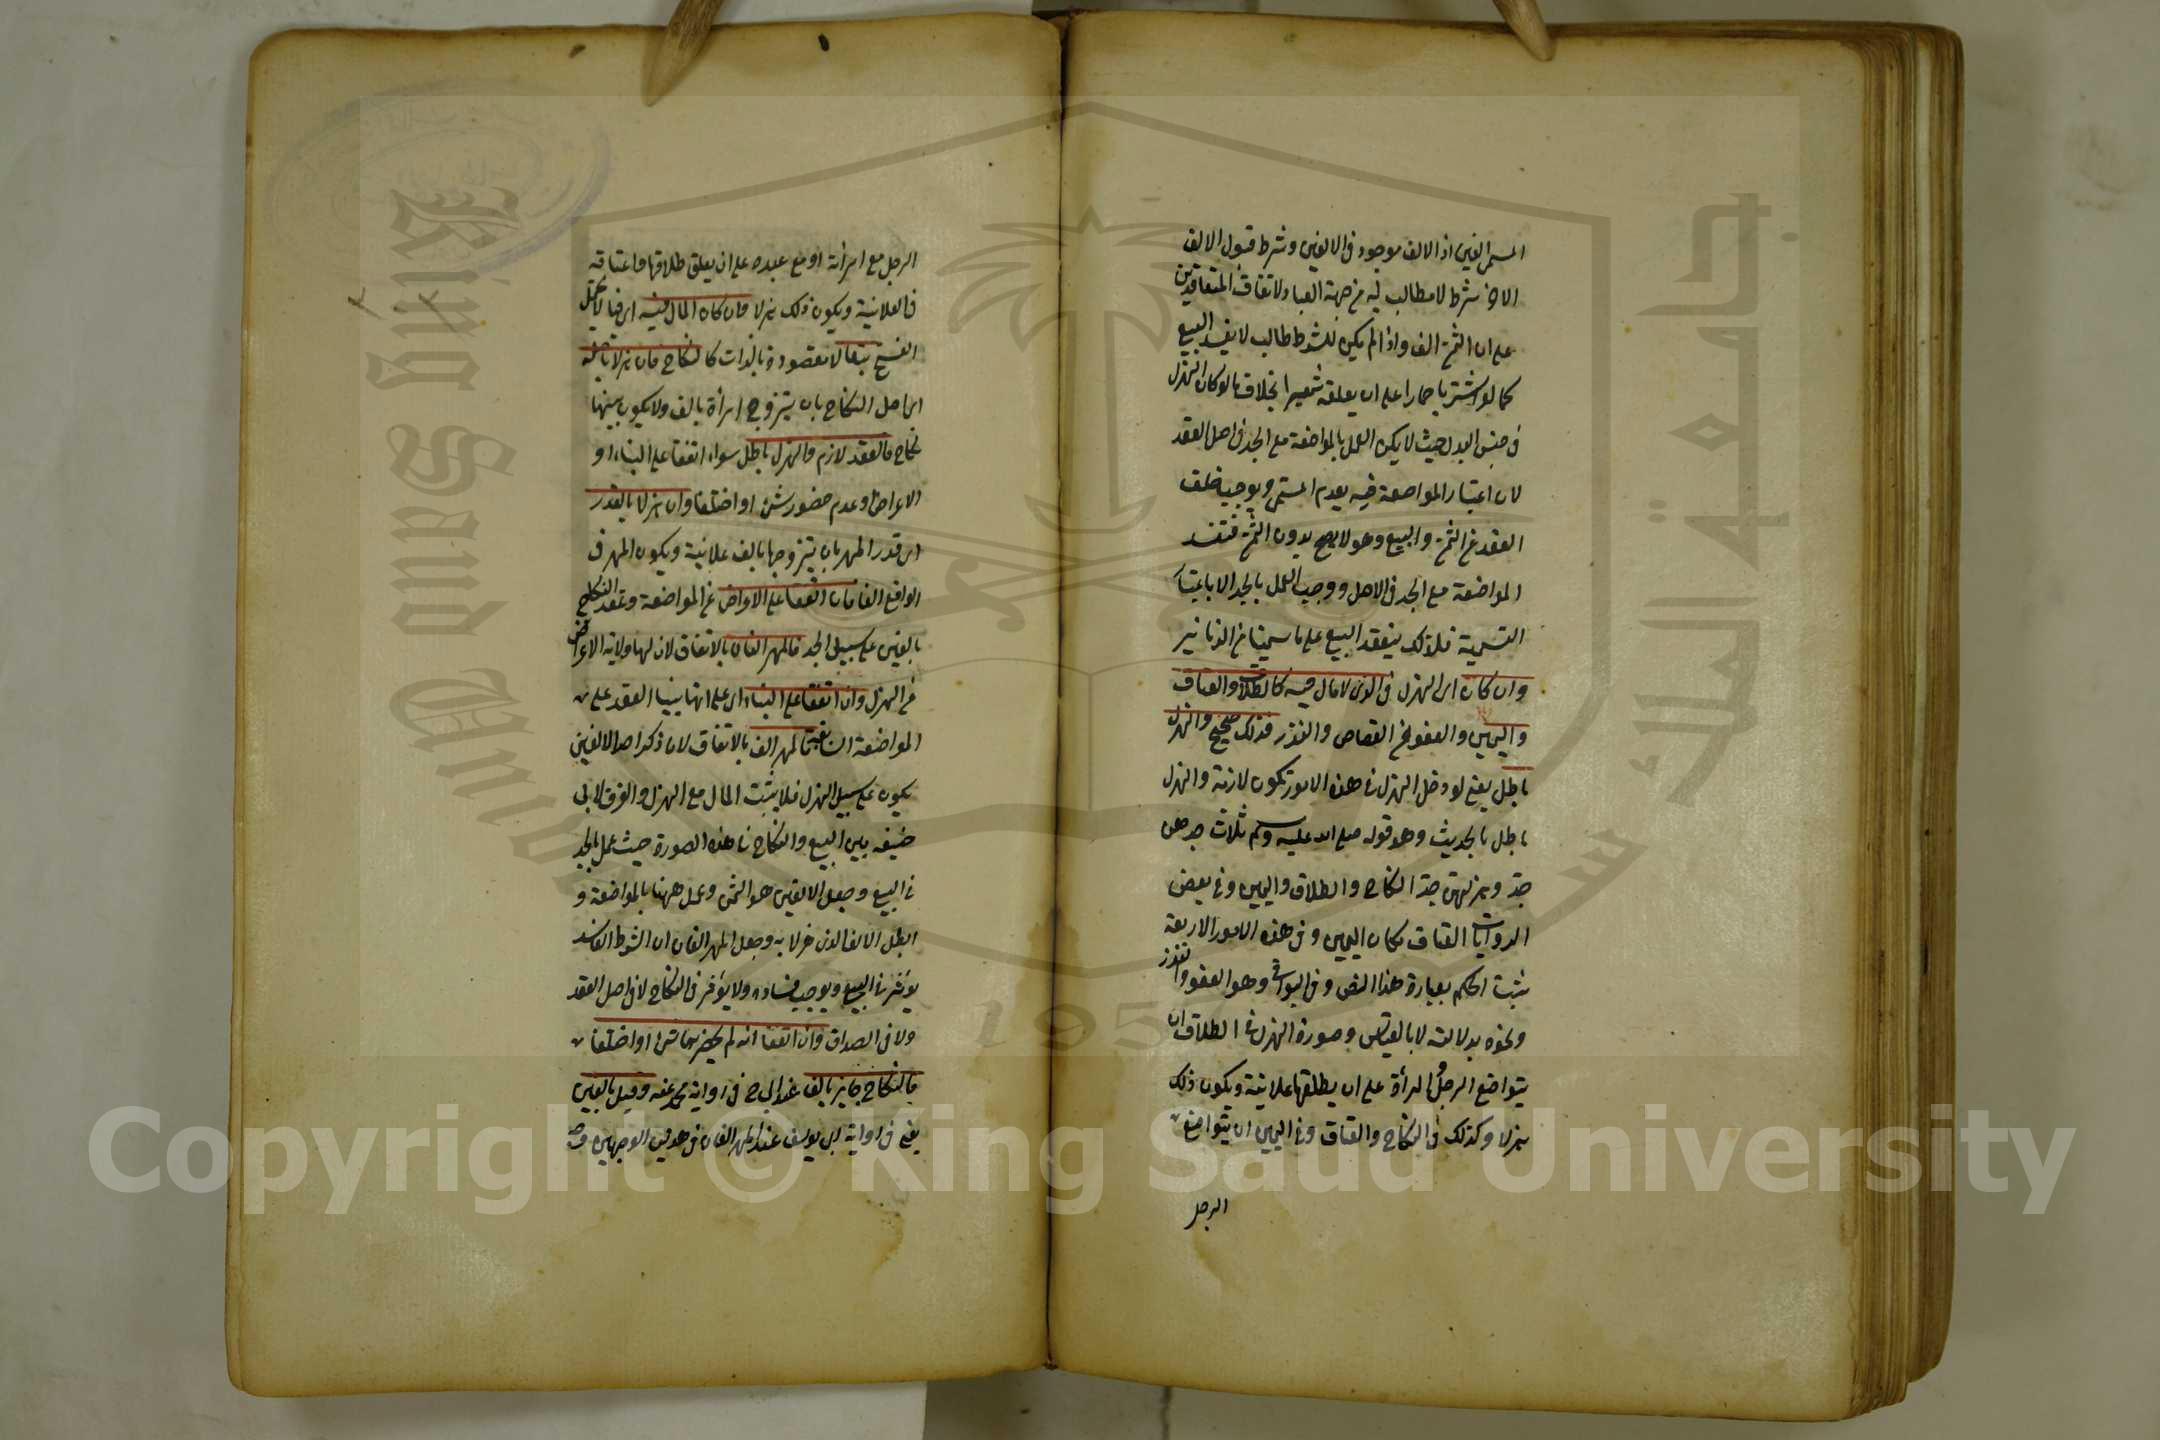 المسمى الفين اذ الالف موجود في الالفين وشرط قبول الالف
الاخر شرط لا مطالب له من جهة العباد لاتفاق المتعاقدين
على ان الثمن الف واذا لم يكن للشرط طالب لا يفسد البيع
كما لو اشترى حمارا على ان يعلفه شعيرا بخلاف ما لو كان الهزل
في جنس البدل حيث لا يمكن العمل بالمواضعة مع الجد في اصل العقد
لان اعتبار المواضعة فيه يعدم المسمى ويوجب خلف
العقد عن الثمن والبيع وهو لا يصح بدون الثمن فتفسد
المواضعة مع الجد في الاصل ووجب العمل بالجد الا باعتبار
التسمية فلذلك ينعقد البيع على ما سمينا من الدنانير
وان كان اى الهزل في الذى لا مال فيه كالطلاق والعتاق
واليمين والعفو عن القصاص والنذر فذلك صحيح والهزل
باطل يعنى لو دخل الهزل في هذه الامور تكون لازمة والهزل
باطل بالحديث وهو قوله صلى الله عليه وسلم ثلاث جدهن
جد وهزلهن جد النكاح والطلاق واليمين وفى بعض
الروايات العتاق مكان اليمين وفى هذه الامور الاربعة
يثبت الحكم بعبارة هذا النص وفى البواقى وهو العفو والنذر
ونحوه بدلالته لا بالقياس وصورة الهزل في الطلاق ان
يتواضع الرجل والمرأة على ان يطلقها علانية ويكون ذلك
هزلا وكذلك في النكاح والعتاق وفى اليمين ان يتواضع
الرجل
الرجل مع امرأته او مع عبده على ان يعلق طلاقها واعتاقه
في العلانية ويكون ذلك هزلا وان كان المال فيه اى فيما لا يحتمل
الفسخ تبعا لا مقصودة بالذات كالنكاح فان هزلا باصله
اى باصل النكاح بان يتزوج امرأة بالف ولا يكون بينهما
نكاح فالعقد لازم والهزل باطل سواء اتفقا على البناء او
الاعراض وعدم حضور شئ او اختلفا وان هزلا بالقدر
اى قدر المهر بان يتزوجها بالف علانية ويكون المهر في
الواقع الفا فان اتفقا على الاعراض عن المواضعة وعقد النكاح
بالفين على سبيل الجد فالمهر الفان بالاتفاق لان لهما ولاية الاعراض
عن الهزل وان اتفقا على البناء اى على انهما بنيا العقد على
المواضعة السابقة فالمهر الف بالاتفاق لان ذكر احد الالفين
يكون على سبيل الهزل فلا يثبت المال مع الهزل والفرق لابى
حنيفه بين البيع والنكاح في هذه الصورة حيث عمل بالجد
في البيع وجعل الالفين هو الثمن وعمل ههنا بالمواضعة و
ابطل الالف الذى هزلا به وجعل المهر الفا ان الشرط الفاسد
يؤثر في البيع ويوجب فساده ولا يؤثر في النكاح لا في اصل العقد
ولا في الصداق وان اتفقا انه لم يحضرهما شئ او اختلفا
فالنكاح جايز بالف عند ابى ح في رواية محمد عنه وقيل بالفين
يعنى في رواية ابى يوسف عنه المهر الفان في هذين الوجهين